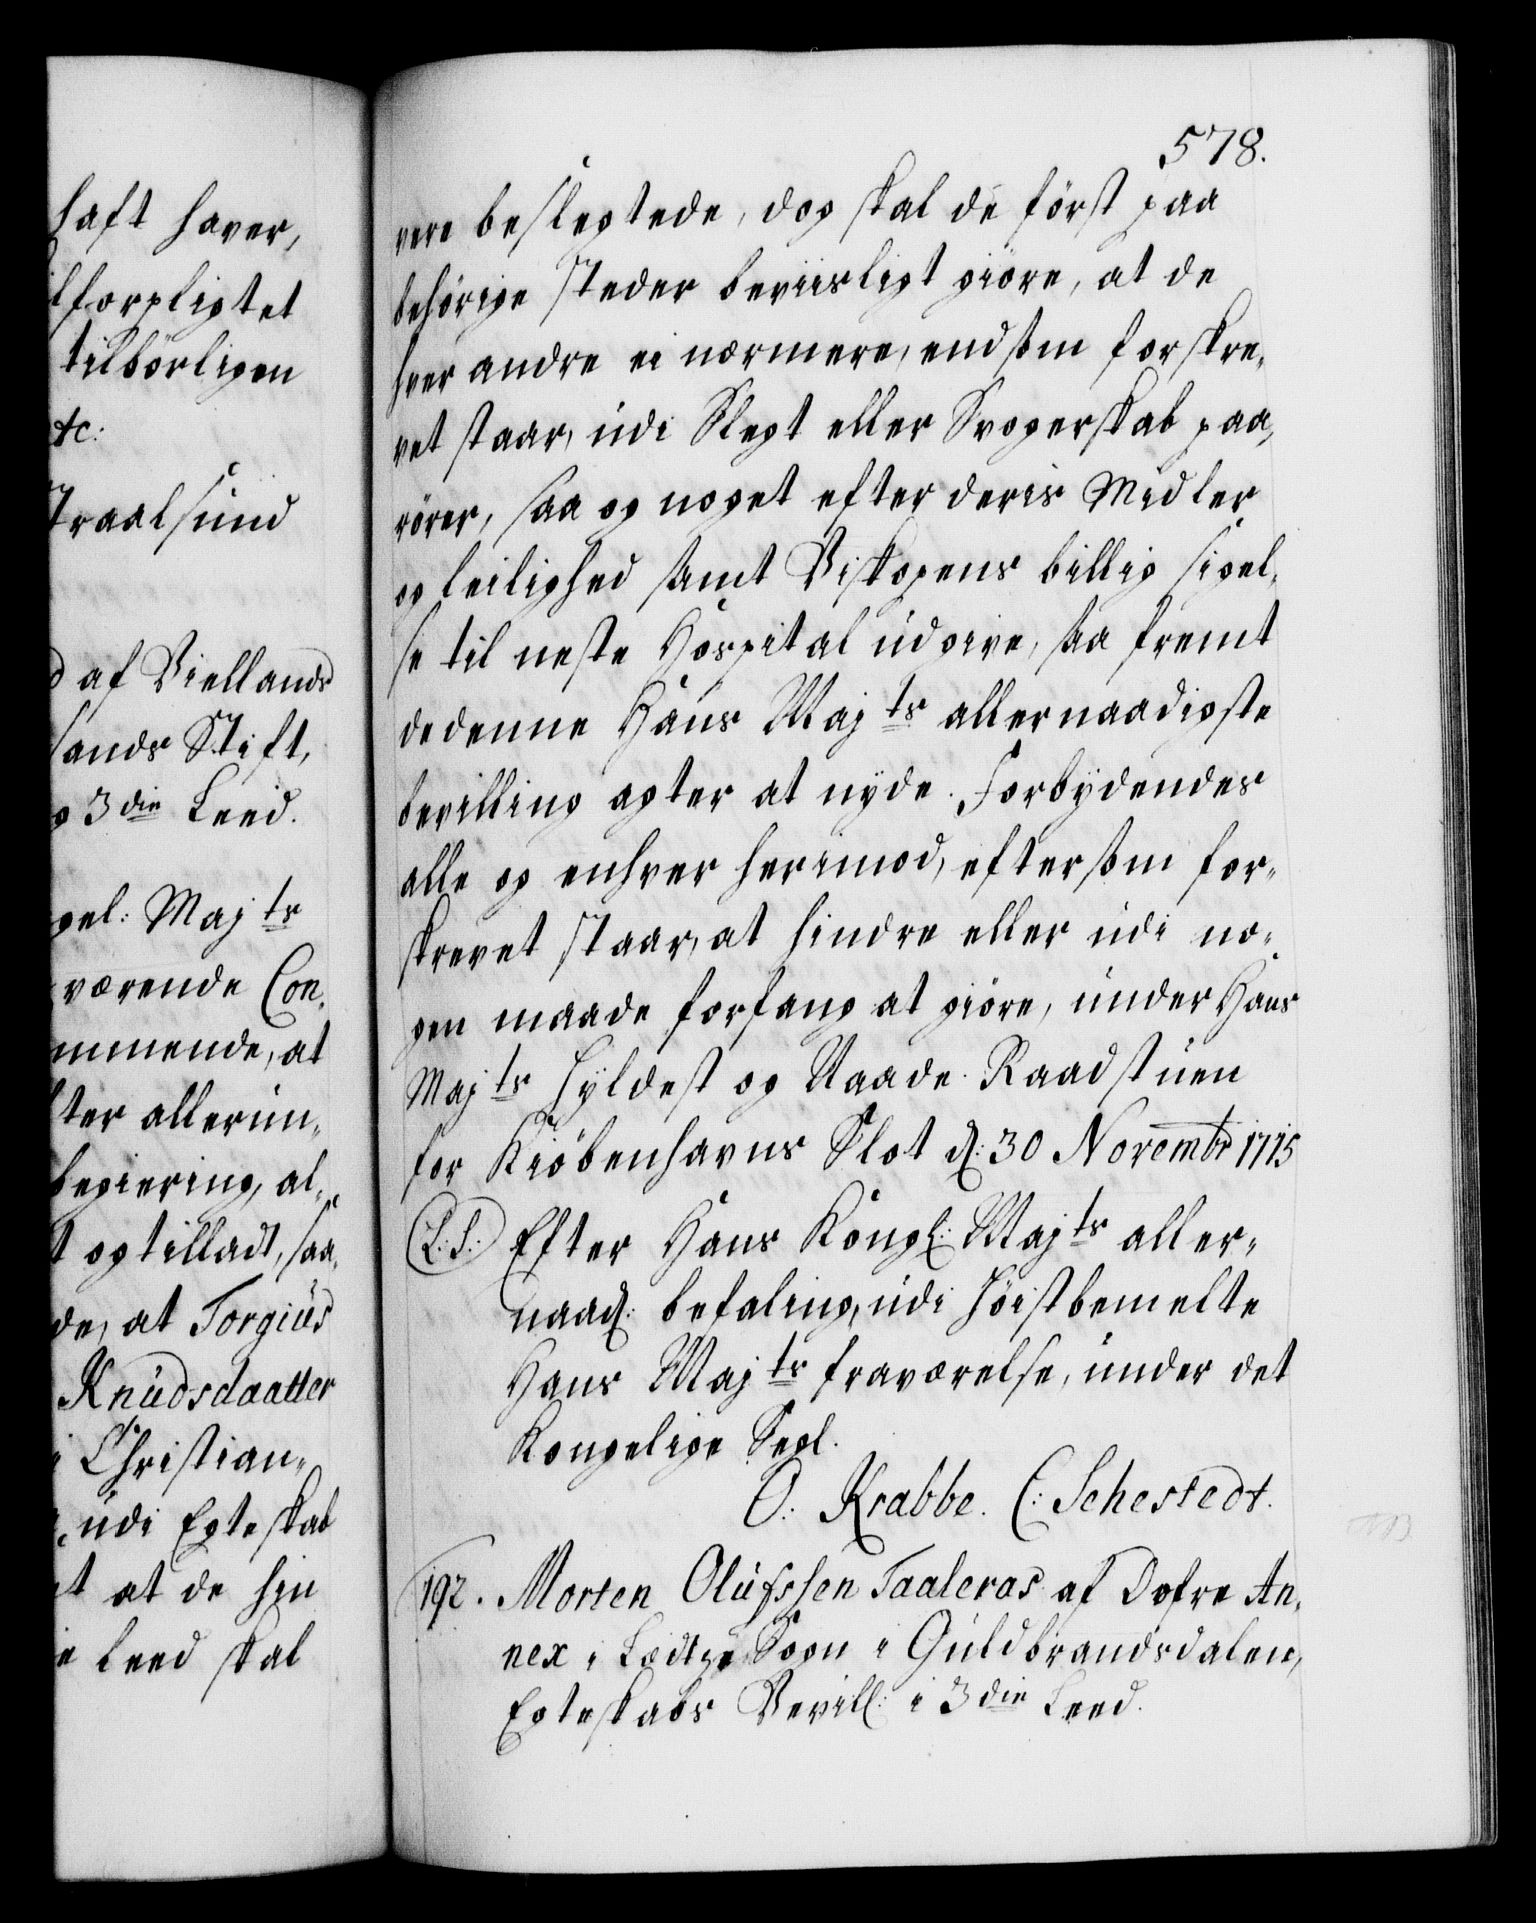 haft haver,
lforpligtet
tilbörligen
etc:
Traalsund
d af Viellands
sands Stift,
g 3die Leed.
gel: Majts
værende Con-
mmende, at
fter allerun-
begiering, al-
t og tilladt, saa
de, at Torgius
Knudsdaatter
i Christian-
udi Egteskab
at de hin
e Leed skal
578.
vere beslegtede, dog skal de först paa
behörige steder beviisligt giöre, at de
hver andre ei nærmere, end som forskre-
vet staar, udi Slegt eller Svogerskab paa-
rörer, saa og noget efter deris Midler
og leilighed samt Biskopens billig sigel-
se til neste Hospital udgive, saa fremt
de denne Hans Majts allernaadigste
bevilling agter at nyde. Forbydendes
alle og enhver herimod, eftersom for-
skrevet staar, at hindre eller udi no-
gen maade forfang at giöre, under Hans
Majts Hyldest og Naade. Raadstuen
for Kiöbenhavns Slot d: 30 Novembr 1715
(L.S.) Efter Hans Kongl: Majts aller-
naad: befaling, udi Höistbemelte
Hans Majts fraværelse, under det
Kongelige Segl.
O: Krabbe. C: Schestedt.
192. Morten Olufssen Taaleras af Dofre An-
nex i Sogn i Guldbrandsdalen,
Egteskabs Bevill: i 3die Leed.